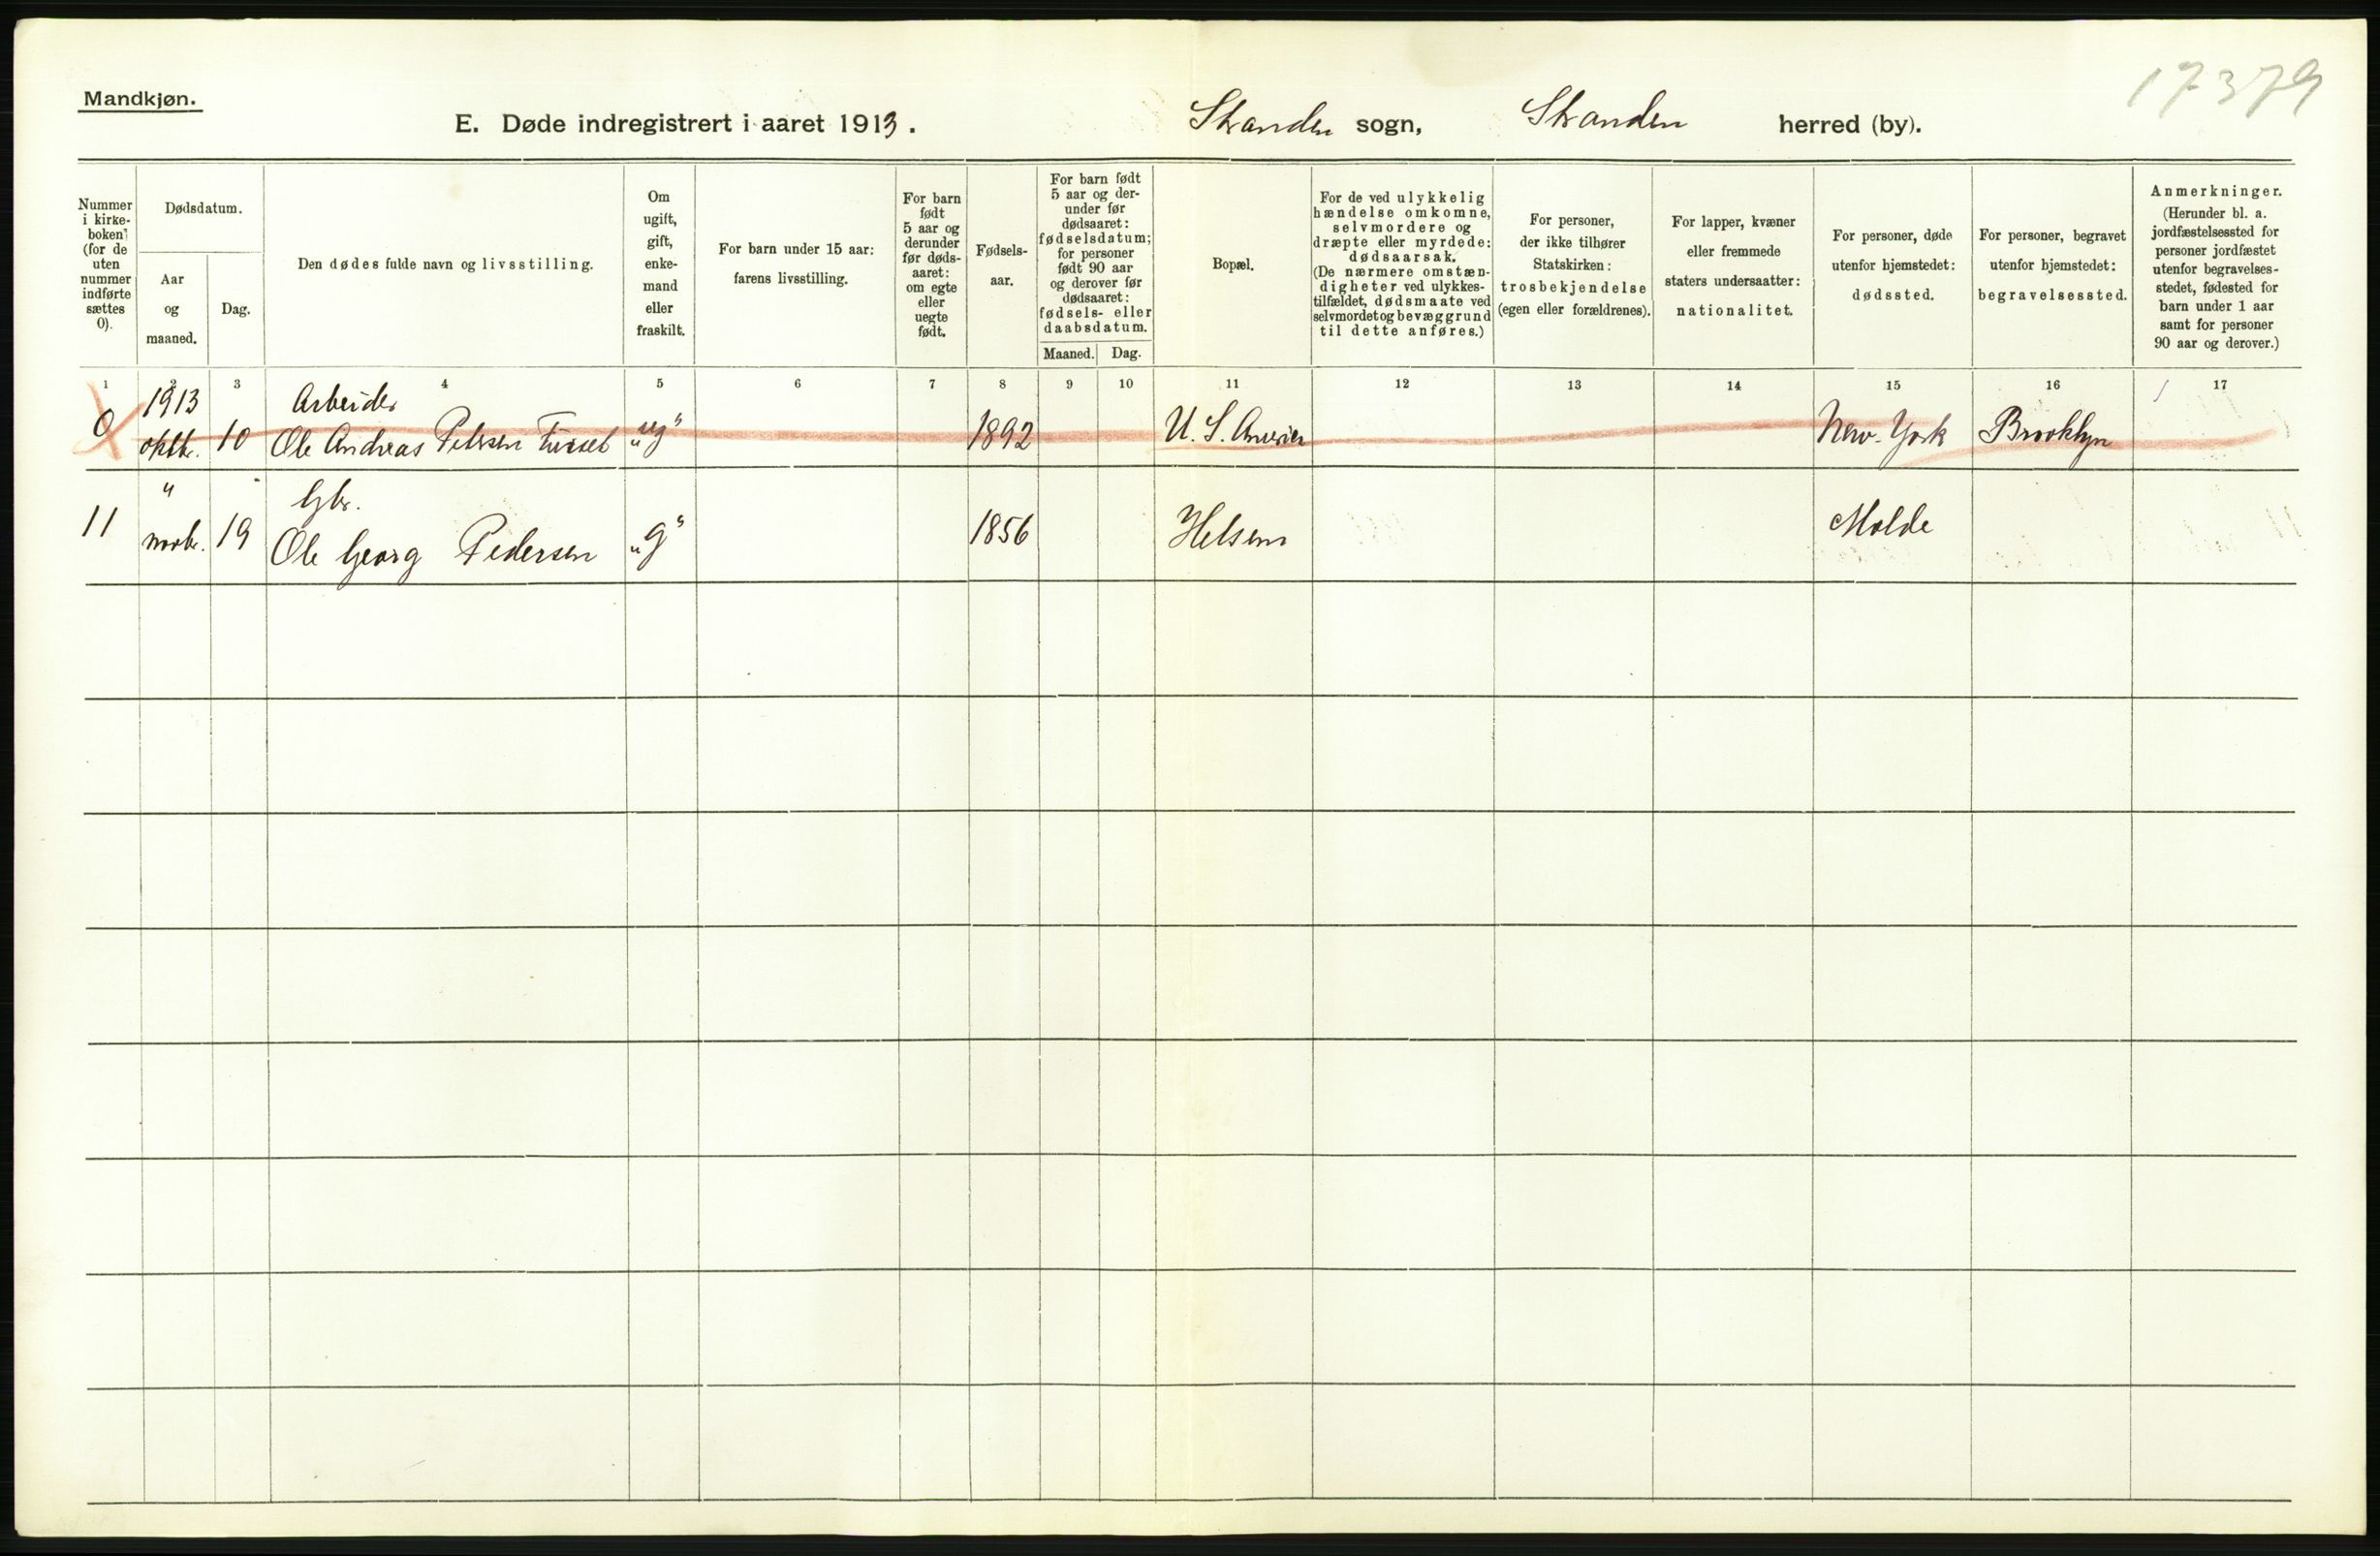 17379
Mandkjøn.
E. Døde indregistrert i aaret 1913. Stranden sogn, Stranden herred (by).
Nummer i kirke- boken (for de uten nummer indførte sættes 0).
Dødsdatum.
Aar og maaned.
Dag.
Den dødes fulde navn og livsstilling.
Om ugift, gift, enke- mand eller fraskilt.
For barn under 15 aar: farens livsstilling.
For barn født 5 aar og derunder før døds- aaret: om egte eller uegte født.
Fødsels- aar.
For barn født 5 aar og der- under før dødsaaret: fødselsdatum; for personer født 90 aar og derover før dødsaaret: fødsels- eller daabsdatum.
Maaned. Dag.
Bopæl.
For de ved ulykkelig hændelse omkomne, selvmordere og dræpte eller myrdede: dødsaarsak. (De nærmere omstæn- digheter ved ulykkes- tilfældet, dødsmaate ved selvmordet og bevæggrund til dette anføres.)
For personer, der ikke tilhører Statskirken: trosbekjendelse (egen eller forældrenes).
For lapper, kvæner eller fremmede staters undersaatter: nationalitet.
For personer, døde utenfor hjemstedet: dødssted.
For personer, begravet utenfor hjemstedet: begravelsessted.
Anmerkninger. (Herunder bl. a. jordfæstelsessted for personer jordfæstet utenfor begravelses- stedet, fødested for barn under 1 aar samt for personer 90 aar og derover.)
1 2 3 4 5 6 7 8 9 10 11 12 13 14 15 16 17
1913 Arbeider
0 oktb. 10 Ole Andreas Petersen "ug" 1892 U. S. America New-York Brooklyn
" Gbr.
11 novbr. 19 Ole Georg Pedersen "g" 1856 Helsem Molde